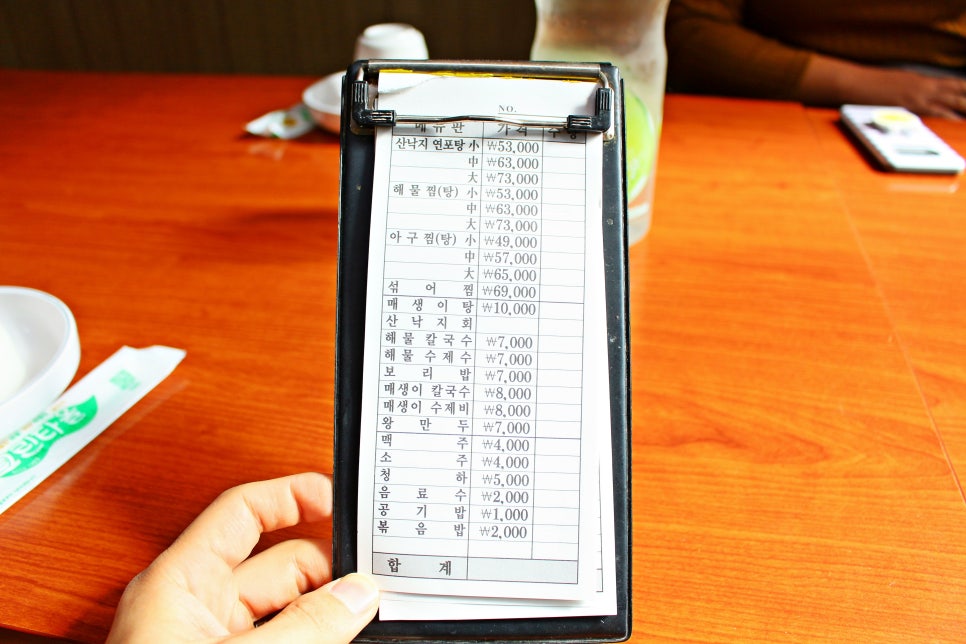 NO.
메뉴판 가격 수량
산낙지 연포탕 小 ₩53,000
中 ₩63,000
大 ₩73,000
해물찜(탕) 小 ₩53,000
中 ₩63,000
大 ₩73,000
아구찜(탕) 小 ₩49,000
中 ₩57,000
大 ₩65,000
섞어찜 ₩69,000
매생이탕 ₩10,000
산낙지회
해물칼국수 ₩7,000
해물수제수 ₩7,000
보리밥 ₩7,000
매생이 칼국수 ₩8,000
매생이 수제비 ₩8,000
왕만두 ₩7,000
맥주 ₩4,000
소주 ₩4,000
청하 ₩5,000
음료수 ₩2,000
공기밥 ₩1,000
볶음밥 ₩2,000
합계